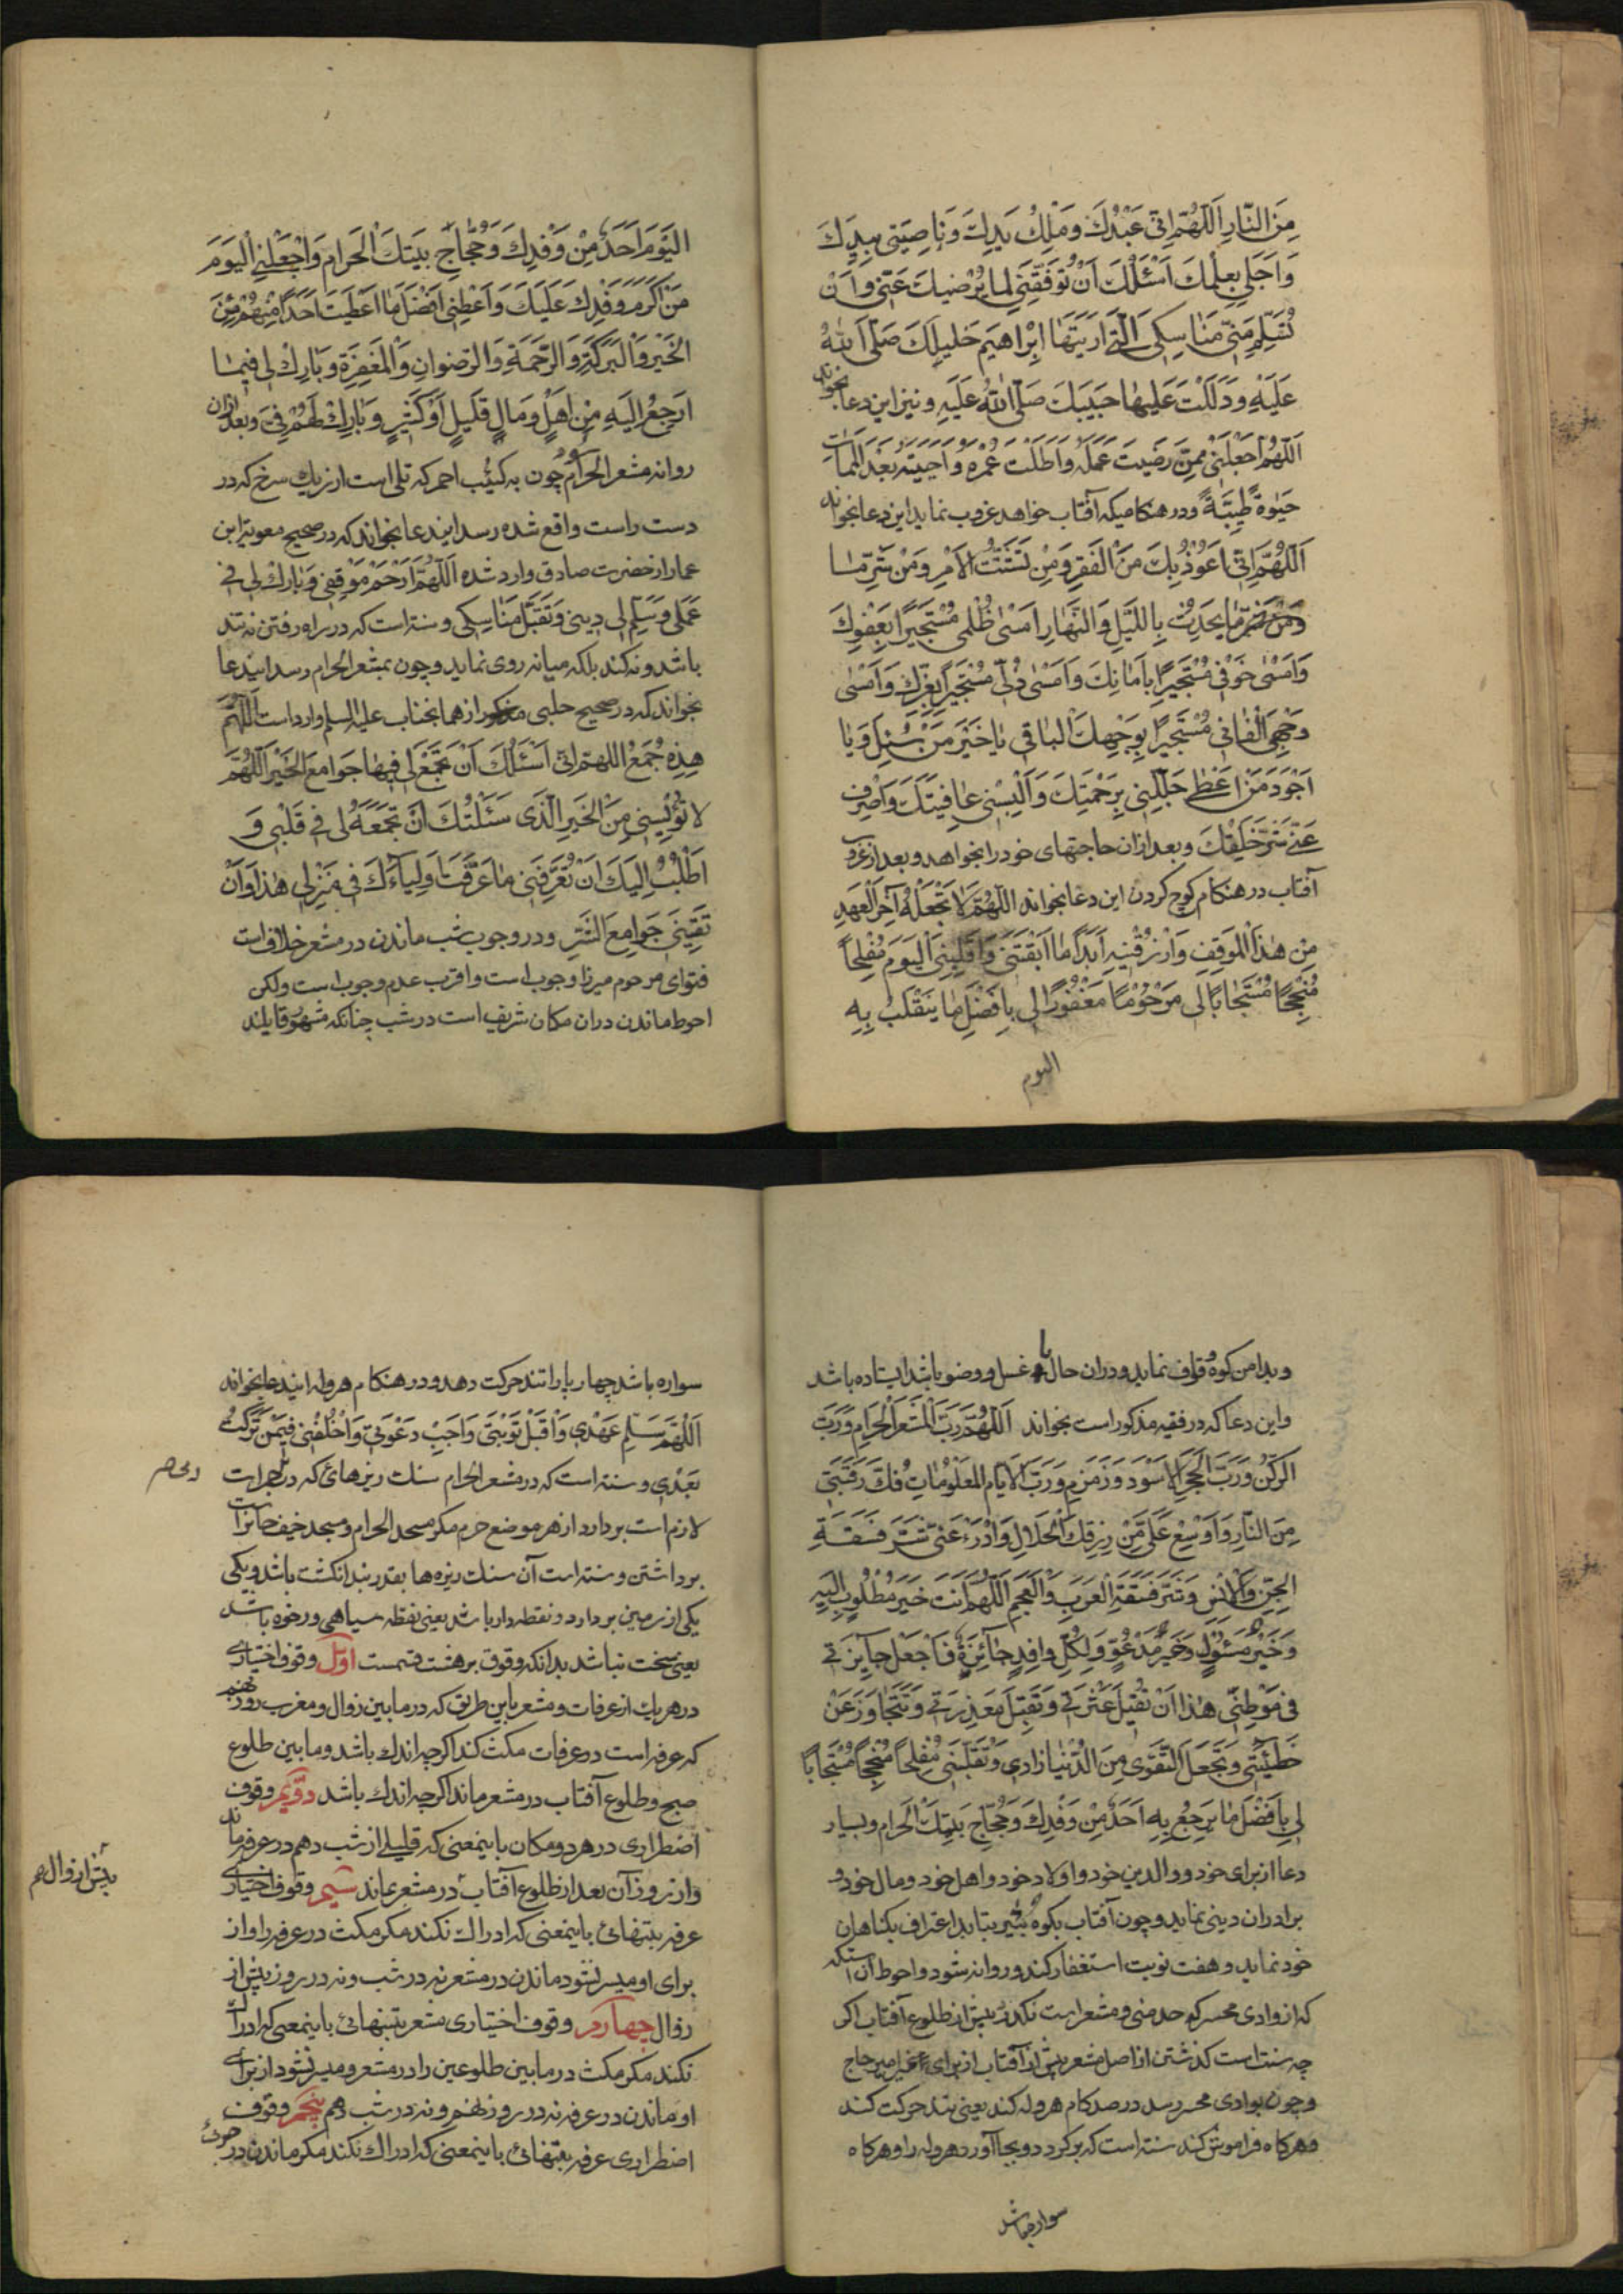 مِنَ النّارِ اَللّهُمَّ اِنّی عَبْدُكَ وَمَلِكُ یَدِكَ وَناصِیَتی بِیَدِكَ
وَاَجَلی بِعِلْمِكَ اَسْئَلُكَ اَنْ تُوَفِّقَنی لِما یُرْضیكَ عَنّی وَاَنْ
تُسَلِّمَ مِنّی مَناسِكِیَ الَّتی اَرَیْتَها اِبْراهیمَ خَلیلَكَ صَلَّی اللهُ
عَلَیْهِ وَدَلَلْتَ عَلَیْها حَبیبَكَ صَلَّی اللهُ عَلَیْهِ ونیز این دعا بخواند
اَللّهُمَّ اجْعَلْنی مِمَّنْ رَضیتَ عَمَلَهُ وَاَطَلْتَ عُمْرَهُ وَاَحْیَیْتَهُ بَعْدَ الْمَماتِ
حَیٰوةً طَیِّبَةً ودر هنکامیکه آفتاب خواهد غروب نماید این دعا بخواند
اَللّهُمَّ اِنّی اَعُوذُ بِكَ مِنَ الْفَقْرِ وَمِنْ تَشَتُّتِ الاَمْرِ وَمِنْ شَرِّ مٰا
یَحْدُثُ بِاللَّیْلِ وَالنَّهارِ اَمْسٰی ظُلْمی مُسْتَجیرًا بِعَفْوِكَ
وَاَمْسٰی خَوْفی مُسْتَجیرًا بِاَمانِكَ وَاَمْسٰی ذُلّی مُسْتَجیرًا بِعِزِّكَ وَاَمْسٰی
وَجْهِیَ الْفانی مُسْتَجیرًا بِوَجْهِكَ الْباقی یا خَیْرَ مَنْ سُئِلَ وَیا
اَجْوَدَ مَنْ اَعْطٰی جَلِّلْنی بِرَحْمَتِكَ وَاَلْبِسْنی عافِیَتَكَ وَاصْرِفْ
عَنّی شَرَّ خَلْقِكَ وبعد ازان حاجتهای خود را بخواهد وبعد از غروب
آفتاب در هنکام کوچ کردن این دعا بخواند اَللّهُمَّ لا تَجْعَلْهُ آخِرَ الْعَهْدِ
مِنْ هٰذَا الْمَوْقِفِ وَارْزُقْنیهِ اَبَدًا ما اَبْقَیْتَنی وَاقْلِبْنِی الْیَوْمَ مُفْلِحًا
مُنْجِحًا مُسْتَجابًا لی مَرْحُومًا مَغْفُورًا لی بِاَفْضَلِ ما یَنْقَلِبُ بِهِ
الیوم
الْیَوْمَ اَحَدٌ مِنْ وَفْدِكَ وَحُجّاجِ بَیْتِكَ الْحَرامِ وَاجْعَلْنِی الْیَوْمَ
مِنْ اَكْرَمِ وَفْدِكَ عَلَیْكَ وَاَعْطِنی اَفْضَلَ ما اَعْطَیْتَ اَحَدًا مِنْهُمْ مِنَ
الْخَیْرِ وَالْبَرَكَةِ وَالرَّحْمَةِ وَالرِّضْوانِ وَالْمَغْفِرَةِ وَبارِكْ لی فیما
اَرْجِعُ اِلَیْهِ مِنْ اَهْلٍ وَمالٍ قَلیلٍ اَوْ كَثیرٍ وَبارِكْ لَهُمْ فِیَّ وبعد ازان
روانه مشعر الحرام چون به کثیب احمر که تلی است از ریك سرخ که در
دست راست واقع شده رسد ایندعا بخواند که در صحیح معویة ابن
عمار از حضرت صادق وارد شده اَللّهُمَّ ارْحَمْ مَوْقِفی وَبارِكْ لی فی
عَمَلی وَسَلِّمْ لی دینی وَتَقَبَّلْ مَناسِكی وسنت است که در راه رفتن نه تند
باشد ونه کند بلکه میانه روی نماید وچون بمشعر الحرام رسد ایندعا
بخواند که در صحیح حلبی مذکور از همانجناب علیه السلم وارداست اَللّهُمَّ
هٰذِهِ جُمَعٌ اللهمّ اِنّی اَسْئَلُكَ اَنْ تَجْمَعَ لی فیها جَوامِعَ الْخَیْرِ اَللّهُمَّ
لا تُؤْیِسْنی مِنَ الْخَیْرِ الَّذی سَئَلْتُكَ اَنْ تَجْمَعَهُ لی فی قَلْبی وَ
اَطْلُبُ اِلَیْكَ اَنْ تُعَرِّفَنی ما عَرَّفْتَ اَوْلِیاءَكَ فی مَنْزِلی هٰذا وَاَنْ
تَقِیَنی جَوامِعَ الشَّرِّ ودر وجوب شب ماندن در مشعر خلاف است
فتوای مرحوم میرزا وجوب است واقرب عدم وجوب است ولکن
احوط ماندن دران مکان شریف است در شب چنانکه مشهور قایلند
وبدامن کوه وقوف نماید ودران حال با غسل و وضو باشد ایستاده باشد
واین دعا که در فقیه مذکور است بخواند اَللّهُمَّ رَبَّ الْمَشْعَرِ الْحَرامِ وَرَبَّ
الرُّكْنِ وَرَبَّ الْحَجَرِ الاَسْوَدِ وَزَمْزَمَ وَرَبَّ الاَیّامِ الْمَعْلُوماتِ فُكَّ رَقَبَتی
مِنَ النّارِ وَاَوْسِعْ عَلَیَّ مِنْ رِزْقِكَ الْحَلالِ وَادْرَءْ عَنّی شَرَّ فَسَقَةِ
الْجِنِّ وَالاِنْسِ وَشَرَّ فَسَقَةِ الْعَرَبِ وَالْعَجَمِ اَللّهُمَّ اَنْتَ خَیْرُ مَطْلُوبٍ اِلَیْهِ
وَخَیْرُ مَسْئُولٍ وَخَیْرُ مَدْعُوٍّ وَلِكُلِّ وافِدٍ جائِزَةٌ فَاجْعَلْ جائِزَتی
فی مَوْطِنی هٰذا اَنْ تُقیلَ عَثْرَتی وَتَقْبَلَ مَعْذِرَتی وَتَتَجاوَزَ عَنْ
خَطیئَتی وَتَجْعَلَ التَّقْوی مِنَ الدُّنْیا زادی وَتَقْلِبَنی مُفْلِحًا مُنْجِحًا مُسْتَجابًا
لی بِاَفْضَلِ ما یَرْجِعُ بِهِ اَحَدٌ مِنْ وَفْدِكَ وَحُجّاجِ بَیْتِكَ الْحَرامِ وبسیار
دعا از برای خود و والدین خود واولاد خود واهل خود ومال خود و
برادران دینی نماید وچون آفتاب بکوه ثبیر بتابد اعتراف بکناهان
خود نماید وهفت نوبت استغفار کند وروانه شود واحوط آن استکه
که از وادی محسر که حد منی ومشعر است نکذرد پیش از طلوع آفتاب اکر
چه سنت است کذشتن از اصل مشعر پیش از آفتاب از برای غیر امیر حاج
وچون بوادی محسر رسد در صد کام هروله کند یعنی تند حرکت کند
وهرکاه فراموش کند سنت است که برکردد وبجا آورد هروله را وهرکاه
سواره باشد
سواره باشد چهار پا را تند حرکت دهد ودر هنکام هروله ایندعا بخواند
اَللّهُمَّ سَلِّمْ عَهْدی وَاقْبَلْ تَوْبَتی وَاَجِبْ دَعْوَتی وَاخْلُفْنی فیمَنْ تَرَكْتُ
بَعْدی وسنت است که در مشعر الحرام سنك ریزهائ که در جمرات
لازم است بردارد از هر موضع حرم مکر مسجد الحرام ومسجد خیف جائز است
برداشتن وسنت است آن سنك ریزه ها بقدر بند انکشت باشد ویکی
یکی از زمین بردارد ونقطه دار باشد یعنی نقطه سیاهی ورخوه باشد
یعنی سخت نباشد بدانکه وقوف بر هشت قسمست اول وقوف اختیاری
در هریك از عرفات ومشعر باین طریق که در مابین زوال ومغرب روز نهم
که عرفه است در عرفات مکث کند اکرچه اندك باشد ومابین طلوع
صبح وطلوع آفتاب در مشعر ماند اکرچه اندك باشد دویم وقوف
اضطراری در هر دو مکان باینمعنی که قلیلی از شب دهم در عرفه ماند
واز روز آن بعد از طلوع آفتاب در مشعر بماند سیم وقوف اختیاری
پیش از زوال
عرفه بتنهائی باینمعنی که ادراك نکند مکر مکث در عرفه را واز
برای او میسر نشود ماندن در مشعر نه در شب ونه در روز پیش از
زوال چهارم وقوف اختیاری مشعر بتنهائی باینمعنی که ادراك
نکند مکر مکث در مابین طلوعین را در مشعر ومیسر نشود از برای
او ماندن در عرفه نه در روز نهم ونه در شب دهم پنجم وقوف
اضطراری عرفه بتنهائی باینمعنی که ادراك نکند مکر ماندن در